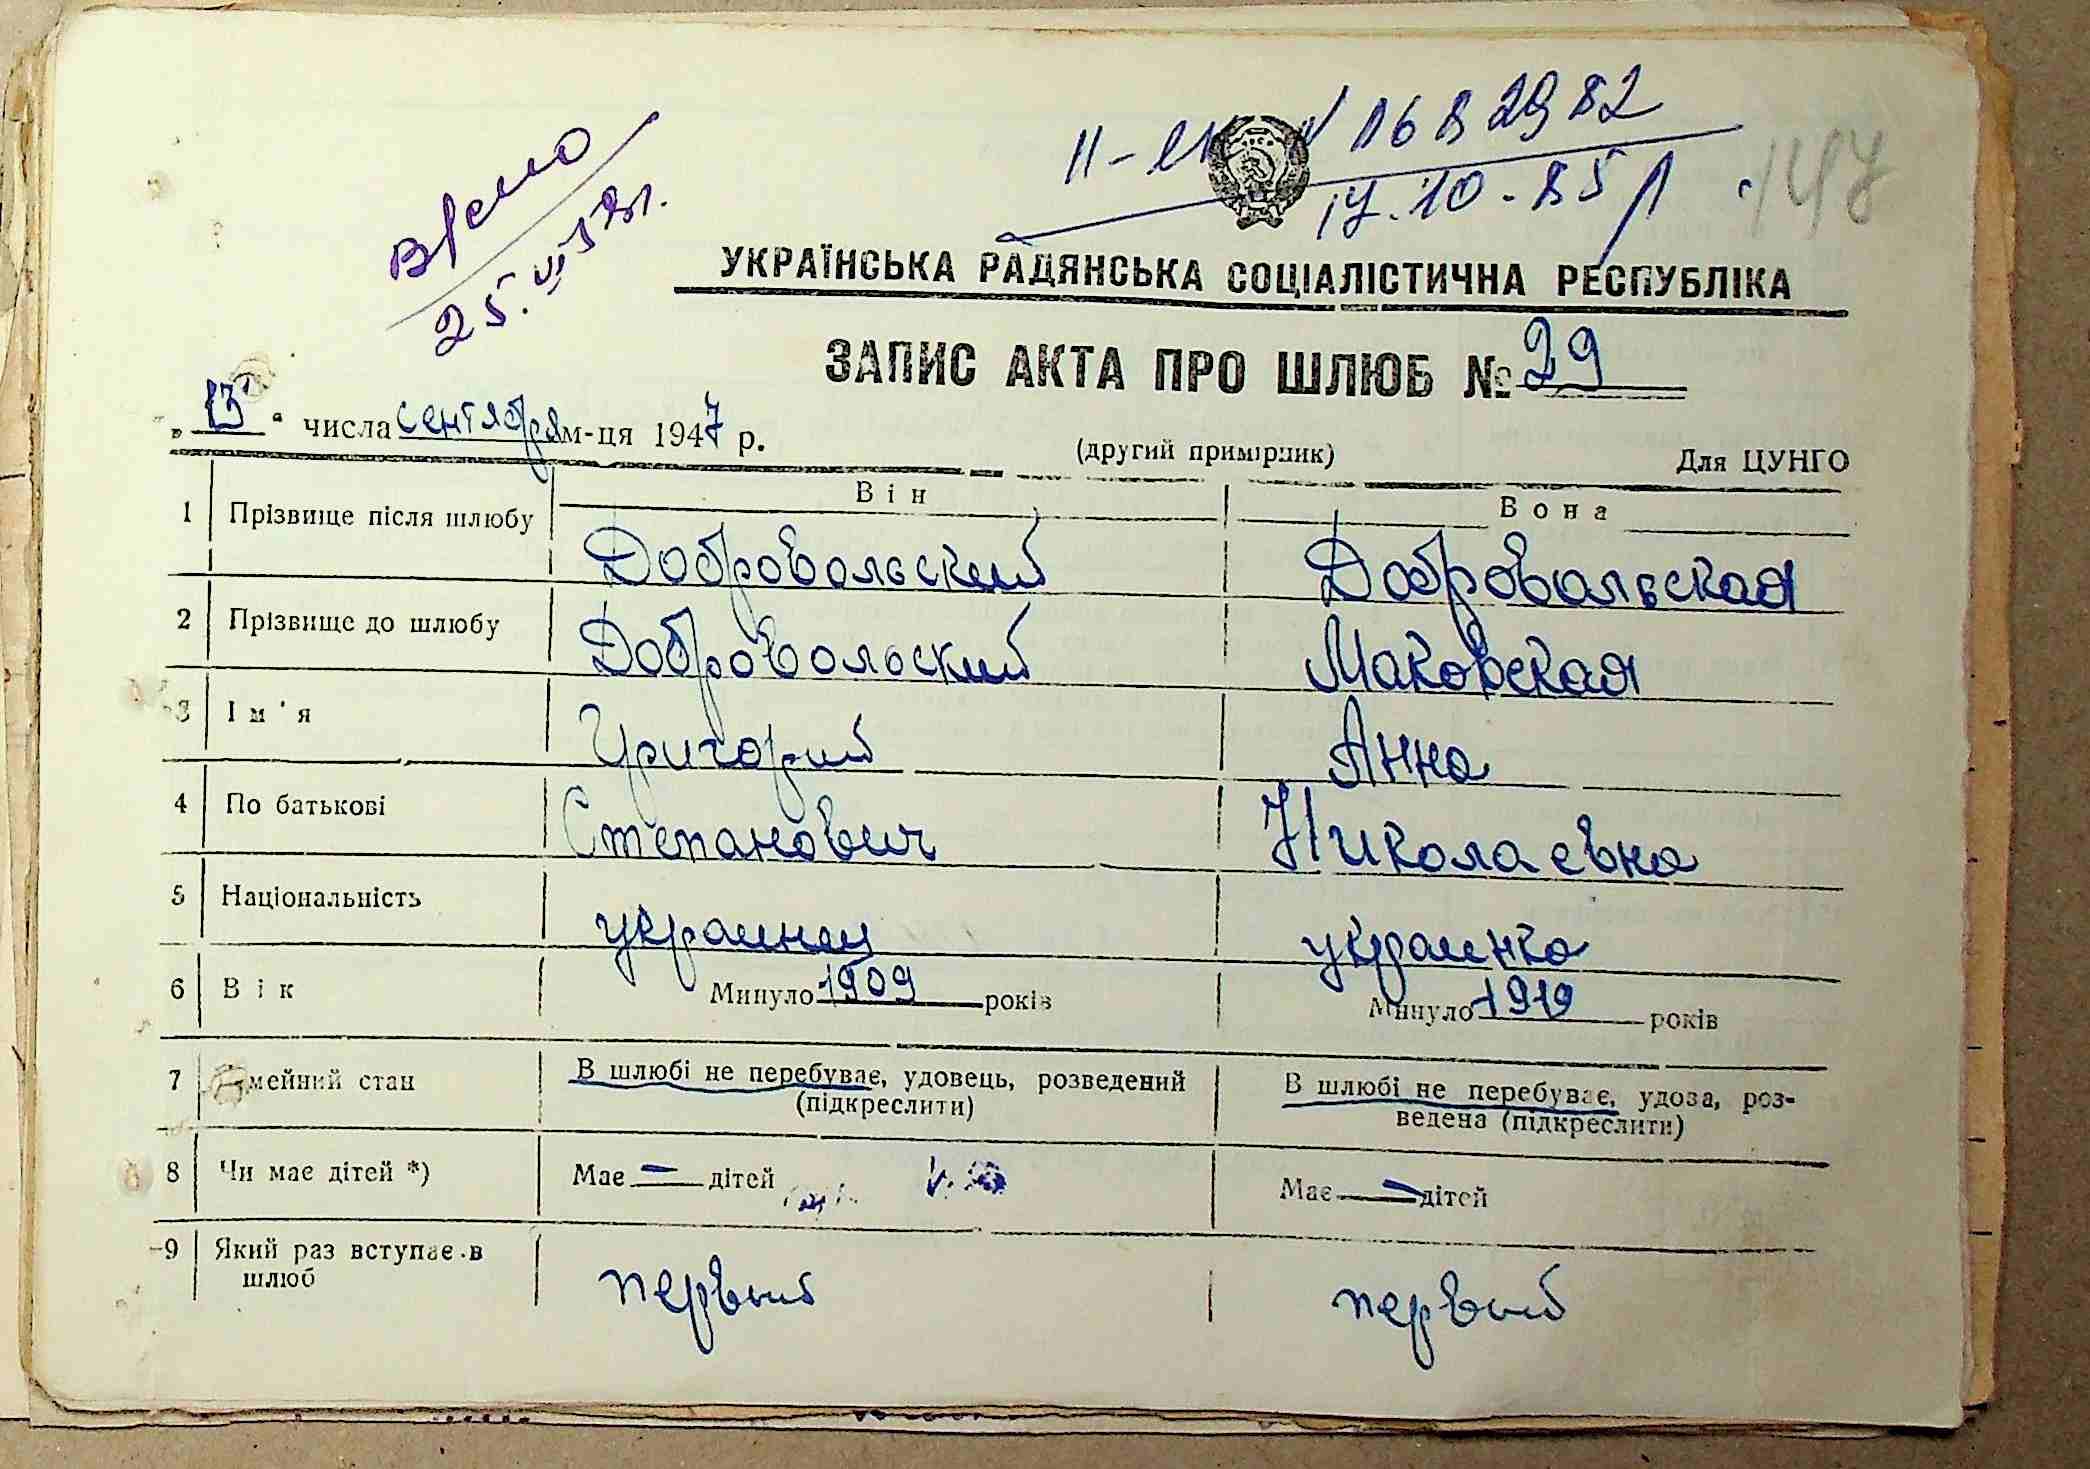 25.VI
17.10-85
147
УКРАЇНСЬКА РАДЯНСЬКА СОЦІАЛІСТИЧНА РЕСПУБЛІКА
ЗАПИС АКТА ПРО ШЛЮБ № 29
„13“ числа сентября м-ця 1947 р.
(другий примірник)
Для ЦУНГО
Він Вона
1 Прізвище після шлюбу Добровольский Добровольская
2 Прізвище до шлюбу Добровольский Маковская
3 Ім'я Григорий Анна
4 По батькові Степанович Николаевна
5 Національність украинец украинка
6 Вік Минуло 1909 років Минуло 1919 років
7 мейний стан В шлюбі не перебуває, удовець, розведений В шлюбі не перебуває, удова, роз-
(підкреслити) ведена (підкреслити)
8 Чи має дітей *) Має — дітей Має — дітей
9 Який раз вступає в первый первый
шлюб